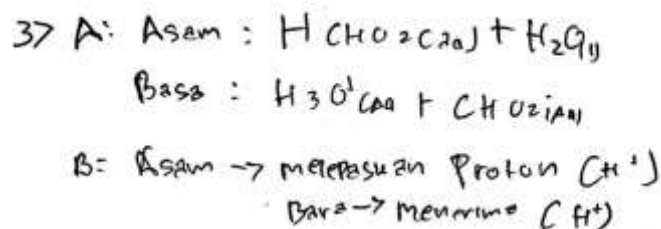 3> A: Asam : HCHO2(aq) + H2O(l)
Basa : H3O+(aq) + CHO2(aq)
B= Asam -> melepaskan Proton (H+)
Basa -> menerima (H+)